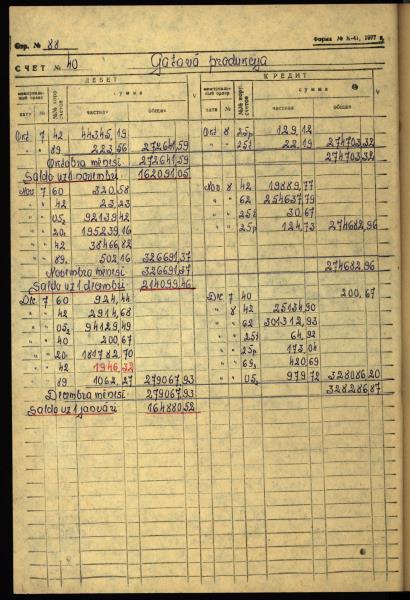 Стр. № 88
Форма № К-41, 1977 г.
СЧЕТ № 40 Gatavā produkcija
ДЕБЕТ КРЕДИТ
мемориальный ордер № № корр. счетов сумма V мемориальный ордер № № корр. счетов сумма V
дата № частная общая дата № частная общая
Okt. 7 42 44345,19 Okt 8 25p 129,12
" " 89 223,56 272641,59 " " 25t 22,19 274703,32
Oktobra mēnesī 272641,59 274703,32
Saldo uz 1 novembri 162091,05
Nov 7 60 320,58 Nov. 8 42 19889,77
" " 42 23,23 " " 62 254637,79
" " 05₂ 92139,42 " " 25t 30,67
" " 20. 195239,16 " " 25p 124,73 274682,96
" " 42 38466,82
" " 89. 502,16 326691,37
Novembra mēnesī 326691,37 274682,96
Saldo uz 1 decembri 214099,46
Dec 7 60 924,44 Dec 7 40 200,67
" " 42 2914,68 " 8 42 25134,90
" " 05₂ 94129,49 " " 62 301312,93
" " 40 200,67 " " 25t 64,92
" " 20. 181782,70 " " 25p 173,04
" " 42 1946,32 " " 69₃ 420,69
" " 89 1062,27 279067,93 " " 05₂ 979,72 328086,20
Decembra mēnesī 279067,93 328286,87
Saldo uz 1 janvāri 164880,52